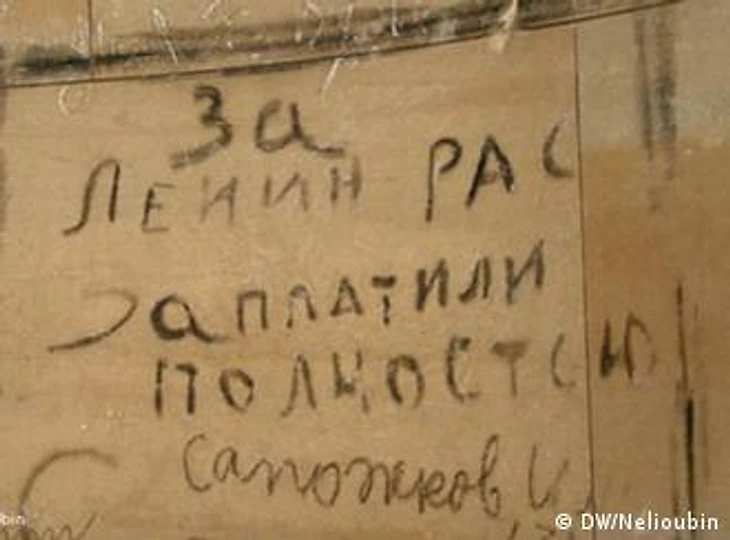 За
ЛЕНИН РАС
ЗаПЛАТИЛИ
ПОЛНОСТСЮ
Сапожков И
© DW/Nelioubin